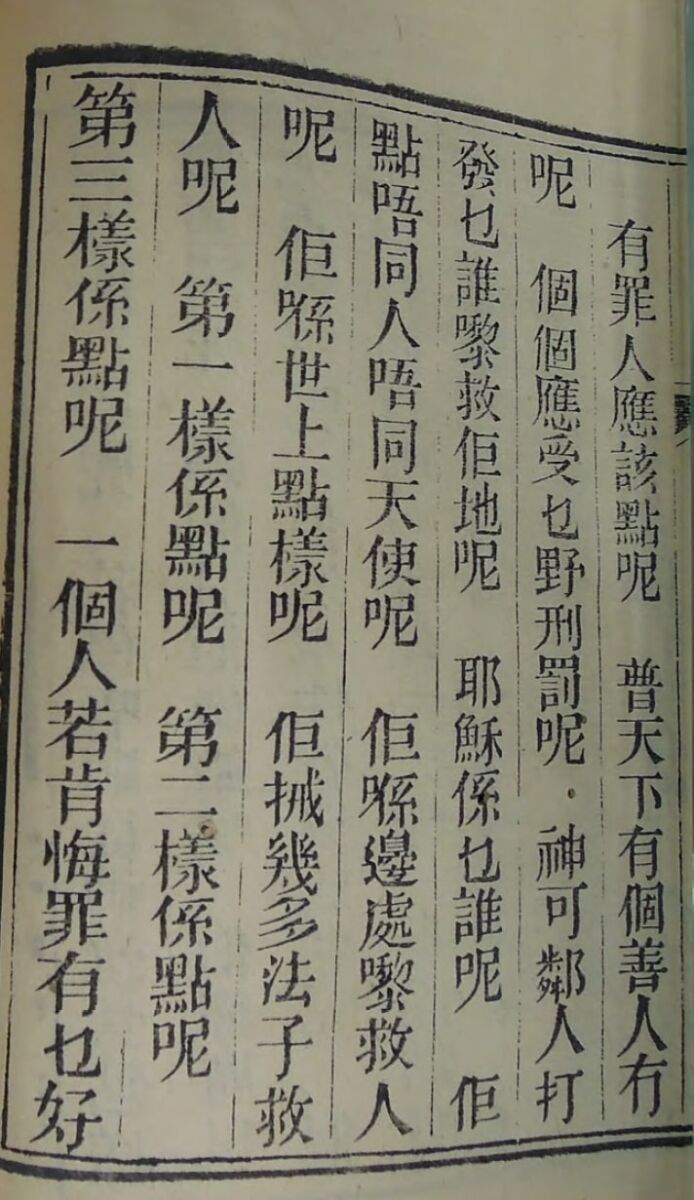 有罪人應該點呢　普天下有個善人冇
呢　個個應受乜野刑罰呢．神可鄰人打
發乜誰嚟救佢地呢　耶穌係乜誰呢　佢
點唔同人唔同天使呢　佢喺邊處嚟救人
呢　佢喺世上點樣呢　佢搣幾多法子救
人呢　第一樣係點呢　第二樣係點呢
第三樣係點呢　一個人若肯悔罪有乜好